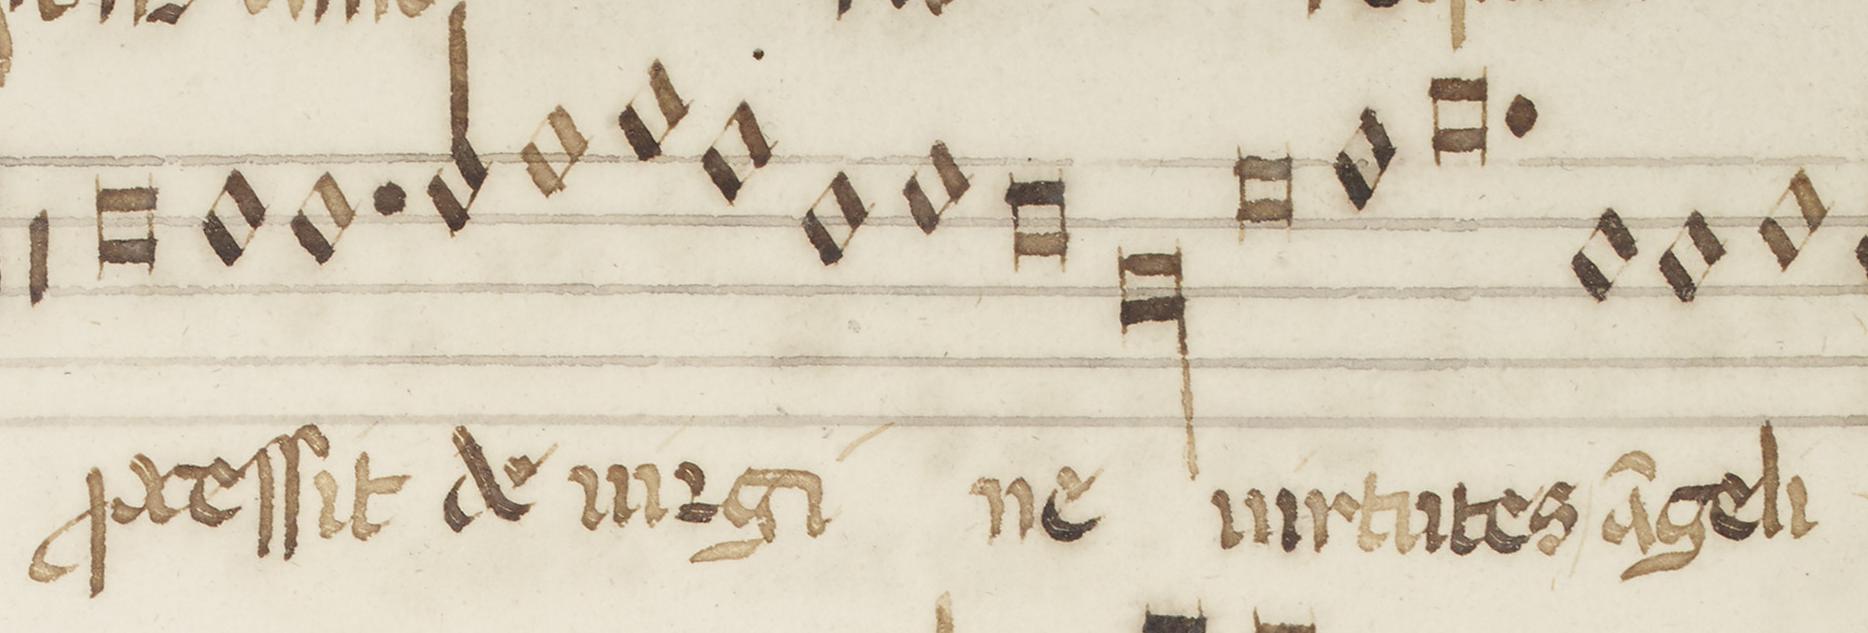 processit de uirgi ne uirtutes ageli